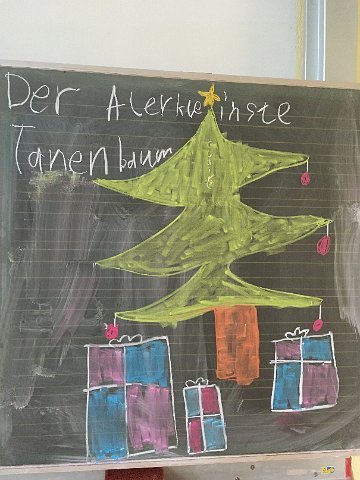 Der Alerkleinste
Tanenbaum